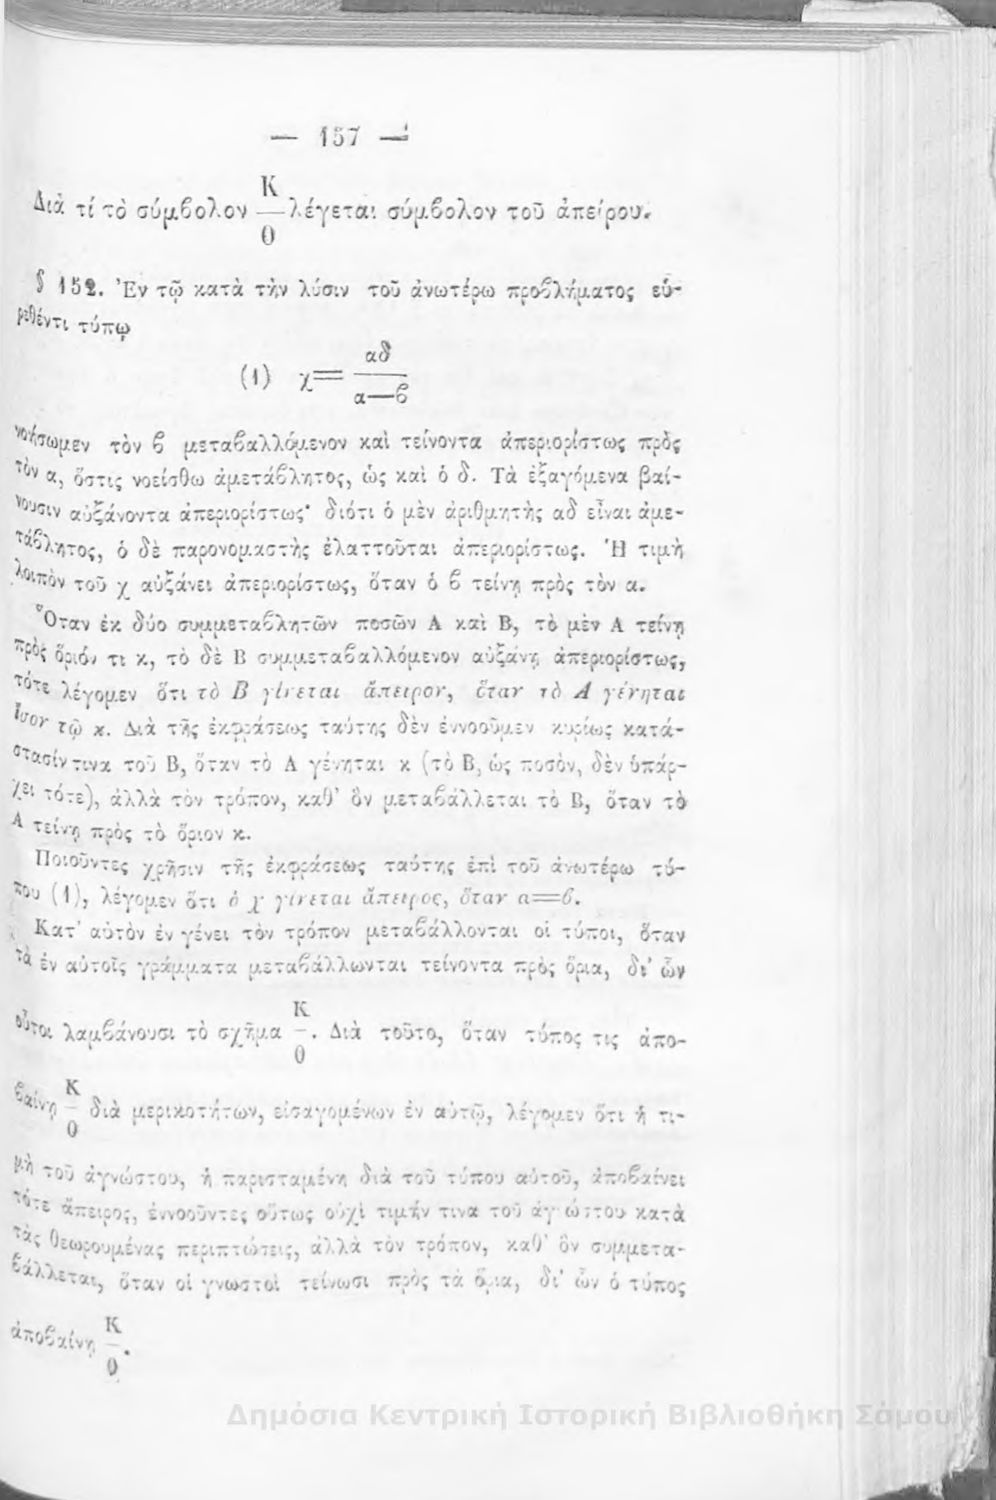 — 157 —
Διὰ τί τὸ σύμβολον K/0 λέγεται σύμβολον τοῦ ἀπείρου.
§ 152. Ἐν τῷ κατὰ τὴν λύσιν τοῦ ἀνωτέρω προβλήματος εὑ-
ρεθέντι τύπῳ
(1) χ = αδ/α—ϐ
νοήσωμεν τὸν ϐ μεταϐαλλόμενον καὶ τείνοντα ἀπεριορίστως πρὸς
τὸν α, ὅστις νοείσθω ἀμετάϐλητος, ὡς καὶ ὁ δ. Τὰ ἐξαγόμενα βαί-
νουσιν αὐξάνοντα ἀπεριορίστως· διότι ὁ μὲν ἀριθμητὴς αδ εἶναι ἀμε-
τάϐλητος, ὁ δὲ παρονομαστὴς ἐλαττοῦται ἀπεριορίστως. Ἡ τιμὴ
λοιπὸν τοῦ χ αὐξάνει ἀπεριορίστως, ὅταν ὁ ϐ τείνῃ πρὸς τὸν α.
Ὅταν ἐκ δύο συμμεταϐλητῶν ποσῶν Α καὶ Β, τὸ μὲν Α τείνῃ
πρὸς ὅριόν τι κ, τὸ δὲ Β συμμεταϐαλλόμενον αὐξάνῃ ἀπεριορίστως,
τότε λέγομεν ὅτι τὸ Β γίνεται ἄπειρον, ὅταν τὸ Α γένηται
ἴσον τῷ κ. Διὰ τῆς ἐκφράσεως ταύτης δὲν ἐννοοῦμεν κυρίως κατά-
στασίν τινα τοῦ Β, ὅταν τὸ Α γένηται κ (τὸ Β, ὡς ποσὸν, δὲν ὑπάρ-
χει τότε), ἀλλὰ τὸν τρόπον, καθ’ ὃν μεταϐάλλεται τὸ Β, ὅταν τὸ
Α τείνῃ πρὸς τὸ ὅριον κ.
Ποιοῦντες χρῆσιν τῆς ἐκφράσεως ταύτης ἐπὶ τοῦ ἀνωτέρω τύ-
που (1), λέγομεν ὅτι ὁ χ γίνεται ἄπειρος, ὅταν α=ϐ.
Κατ’ αὐτὸν ἐν γένει τὸν τρόπον μεταϐάλλονται οἱ τύποι, ὅταν
τὰ ἐν αὐτοῖς γράμματα μεταϐάλλωνται τείνοντα πρὸς ὅρια, δι’ ὧν
οὗτοι λαμϐάνουσι τὸ σχῆμα K/0. Διὰ τοῦτο, ὅταν τύπος τις ἀπο-
ϐαίνῃ K/0 διὰ μερικοτήτων, εἰσαγομένων ἐν αὐτῷ, λέγομεν ὅτι ἡ τι-
μὴ τοῦ ἀγνώστου, ἡ παρισταμένη διὰ τοῦ τύπου αὐτοῦ, ἀποϐαίνει
τότε ἄπειρος, ἐννοοῦντες οὕτως οὐχὶ τιμήν τινα τοῦ ἀγνώστου κατὰ
τὰς θεωρουμένας περιπτώσεις, ἀλλὰ τὸν τρόπον, καθ’ ὃν συμμετα-
ϐάλλεται, ὅταν οἱ γνωστοὶ τείνωσι πρὸς τὰ ὅρια, δι’ ὧν ὁ τύπος
ἀποϐαίνῃ K/0.
Δημόσια Κεντρική Ιστορική Βιβλιοθήκη Σάμου